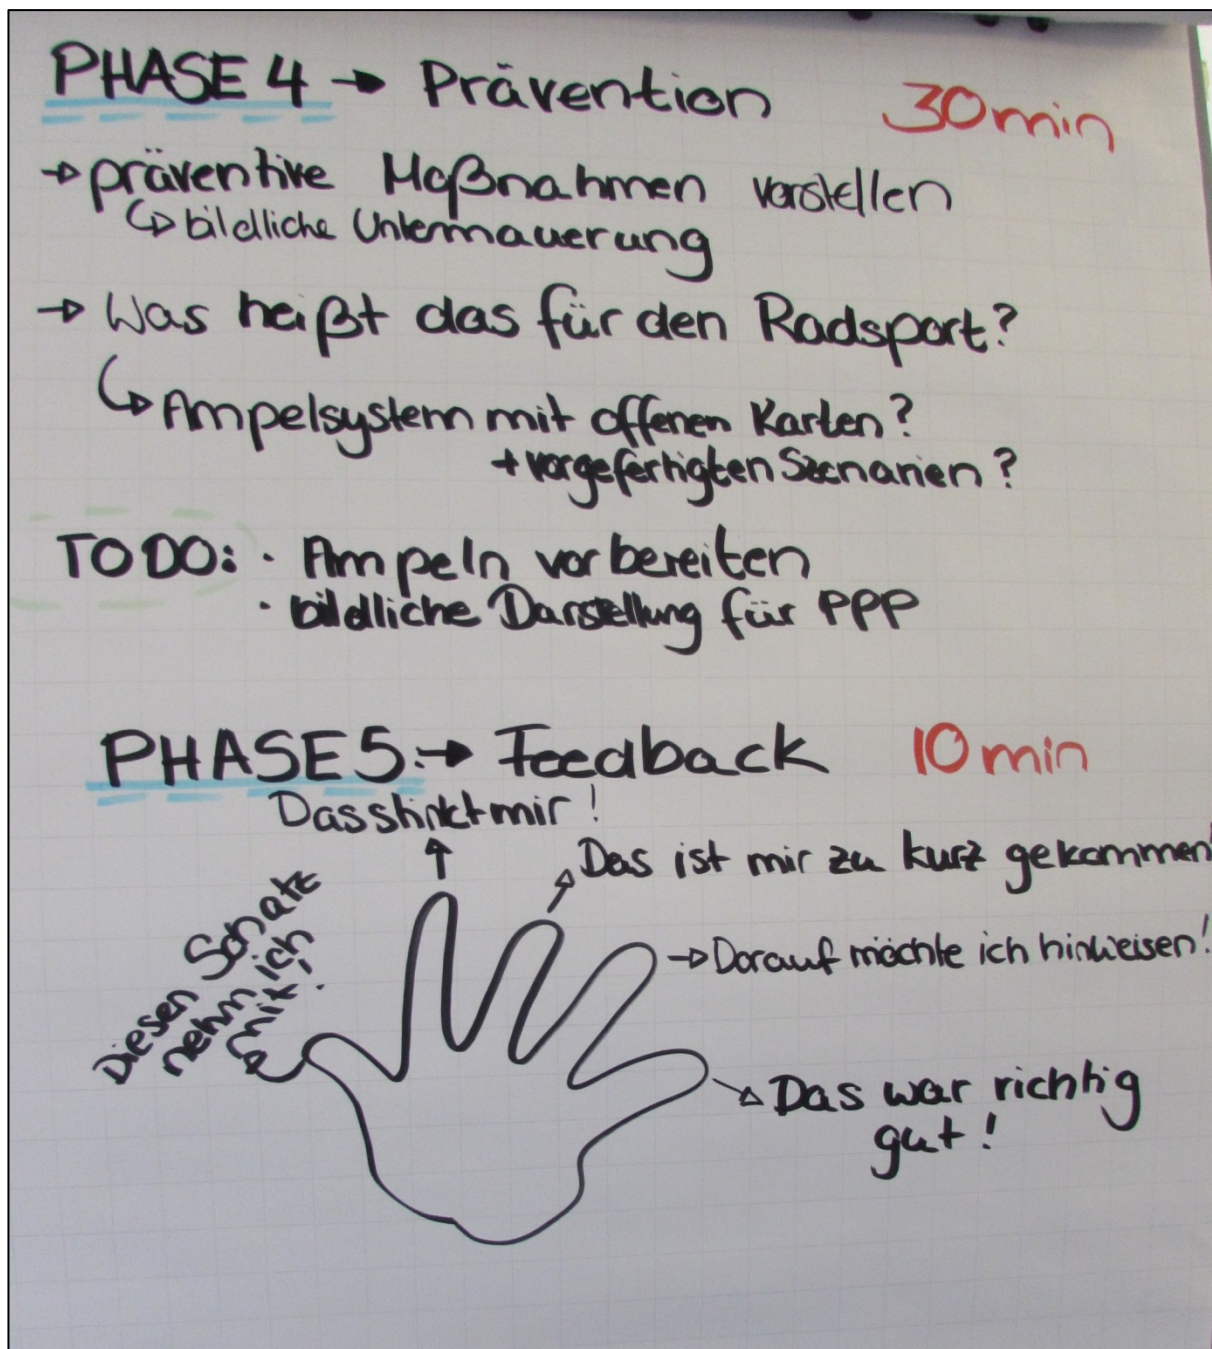 PHASE 4 → Prävention 30 min
→ präventive Maßnahmen vorstellen
↳ bildliche Untermauerung
→ Was heißt das für den Radsport?
↳ Ampelsystem mit offenen Karten?
+ vorgefertigten Szenarien?
TO DO: · Ampeln vorbereiten
· bildliche Darstellung für PPP
PHASE 5: → Feedback 10 min
Das stinkt mir!
Das ist mir zu kurz gekommen!
Diesen Schatz
nehm ich
mit!
→ Darauf möchte ich hinweisen!
Das war richtig
gut!